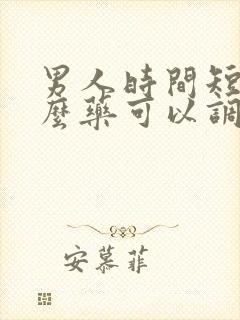 男人時間短
麼藥可以調
安慕菲